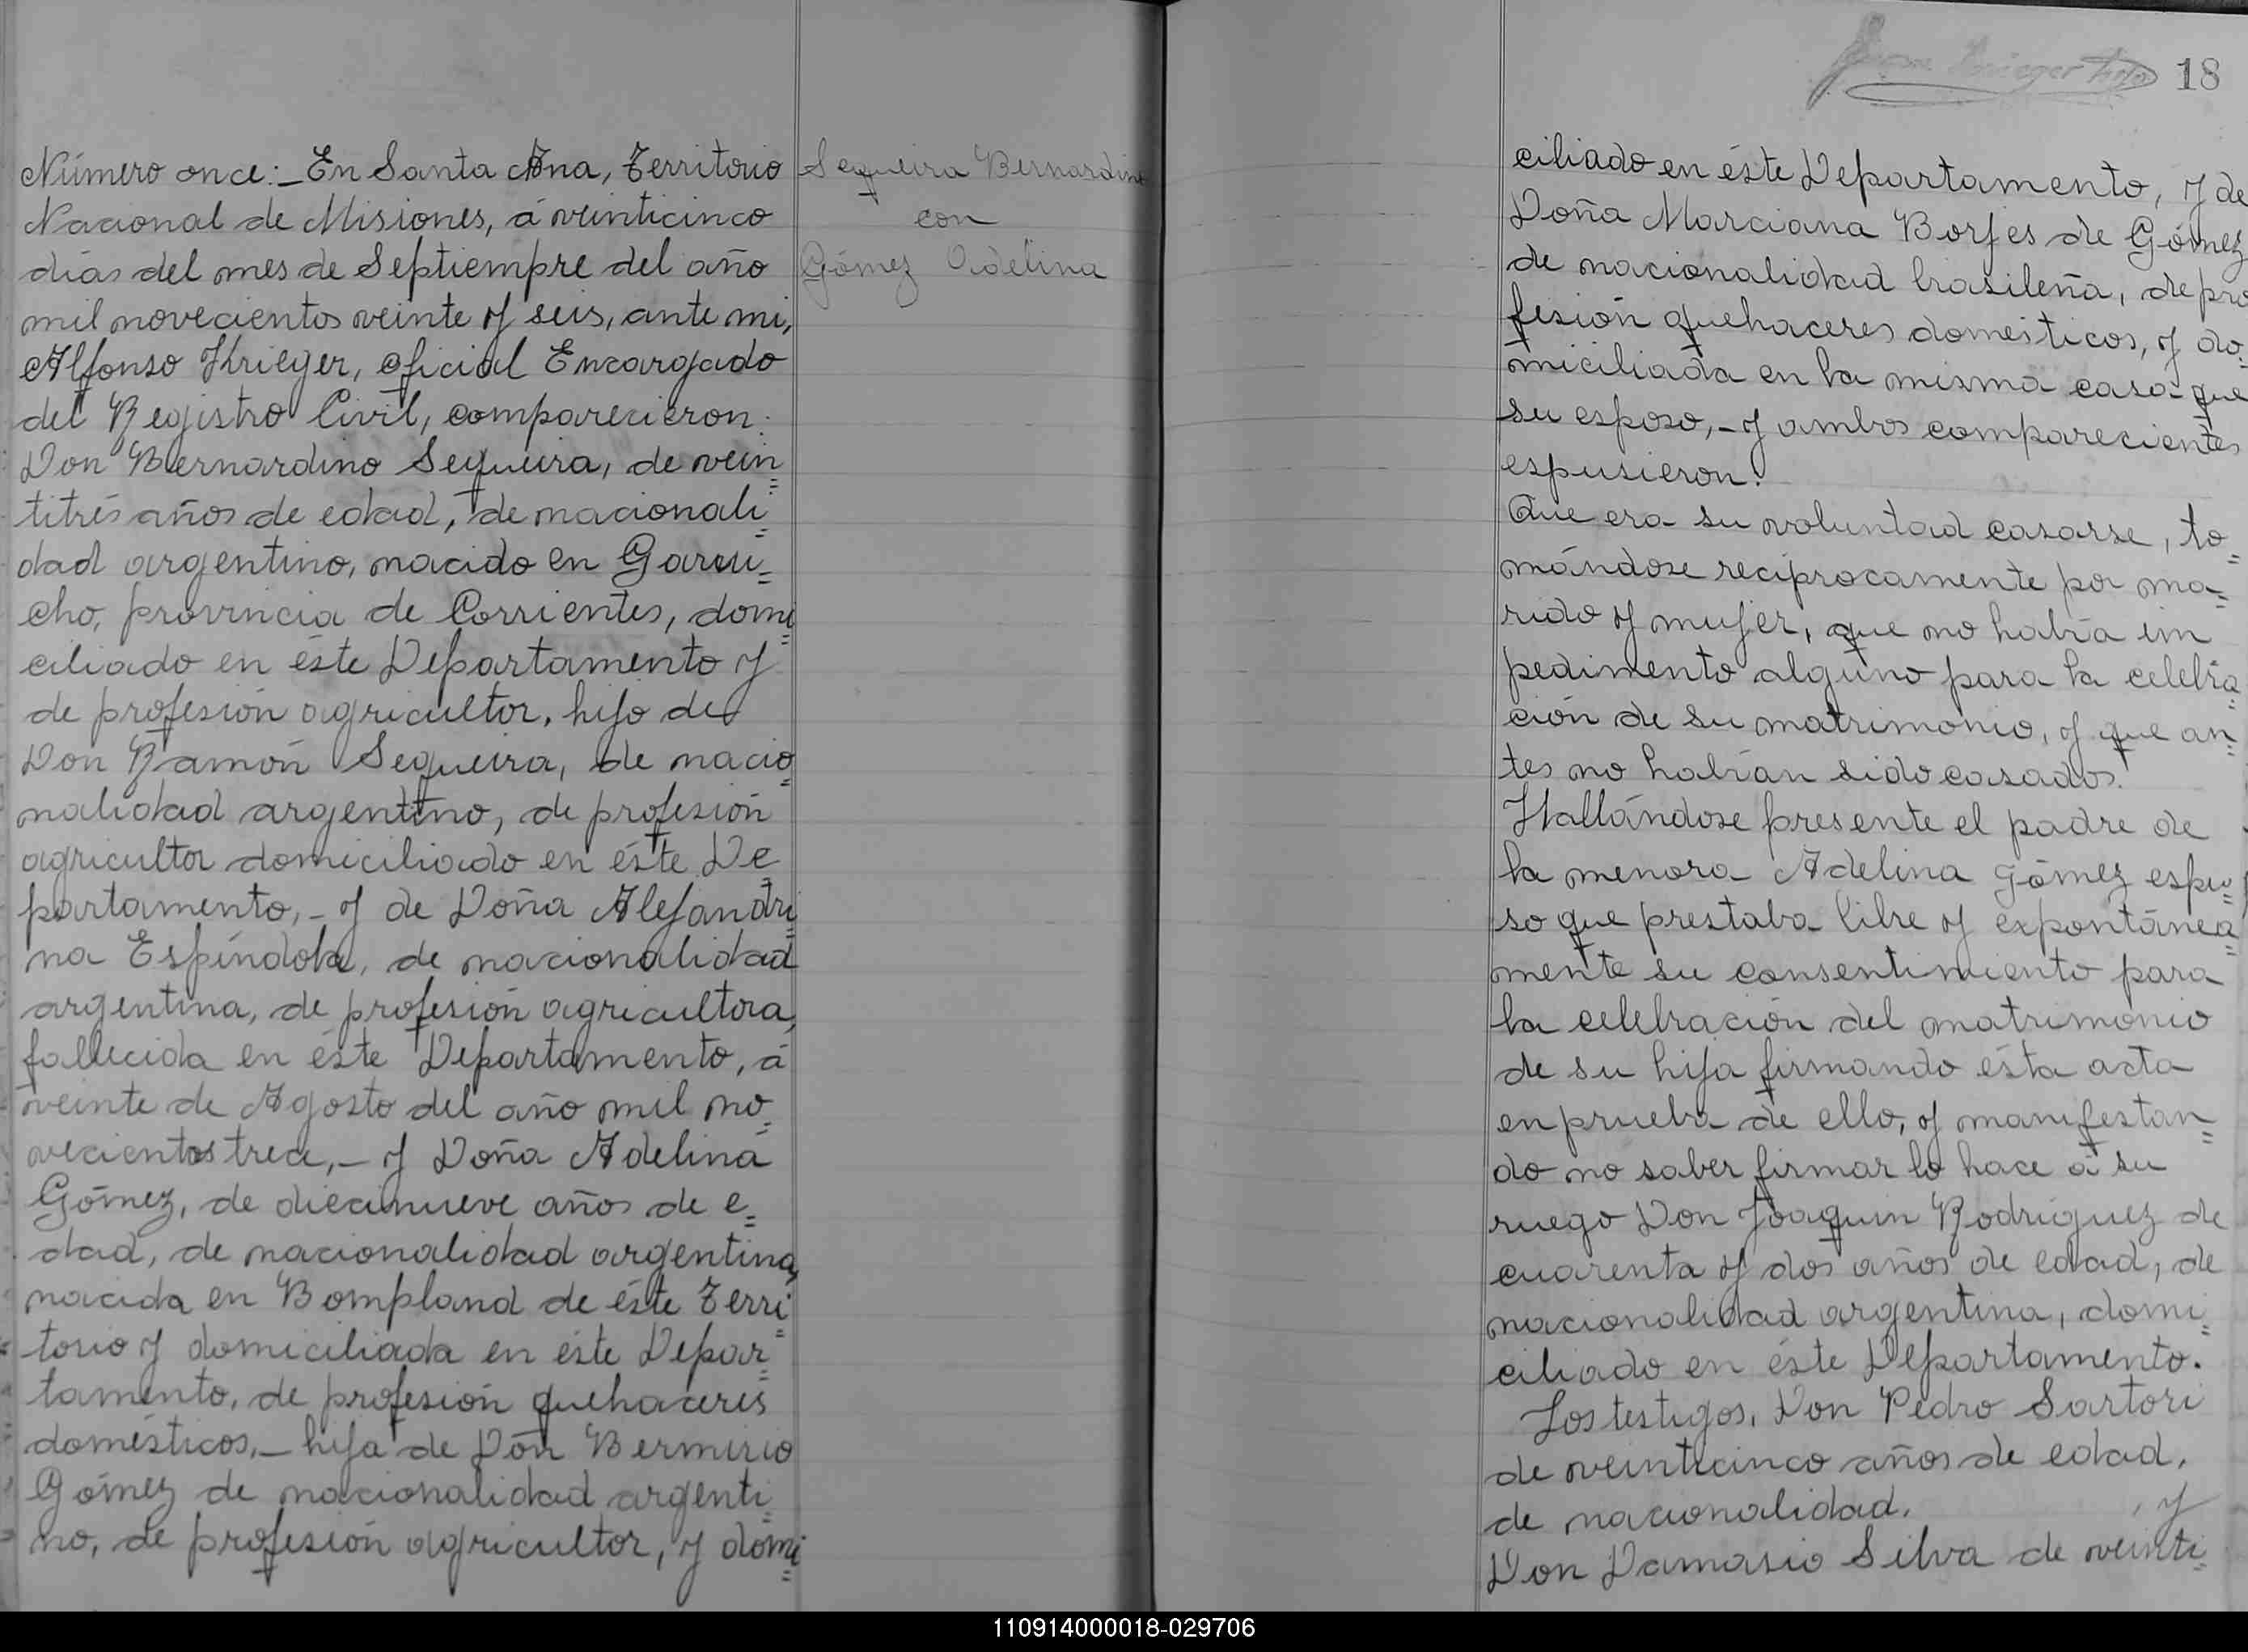 Número once:_ En Santa Ana, Territorio
Nacional de Misiones, á veinticinco
días del mes de Septiempre del año
mil novecientos veinte y seis, ante mi,
Alfonso Krieger, oficial Encargado
del Registro Civil, comparecieron:
Don Bernardino Sequeira, de vein=
titrés años de edad, de nacionali=
dad argentino, nacido en Garru=
cho, provincia de Corrientes, domi=
ciliado en éste Departamento y
de profesión agricultor, hijo de
Don Ramón Sequeira, de nacio=
nalidad argentino, de profesión
agricultor domiciliado en éste De=
partamento,_ y de Doña Alejandri=
na Espíndola, de nacionalidad
argentina, de profesión agricultora,
fallecida en éste Departamento, á
veinte de Agosto del año mil no=
vecientos trece,_ y Doña Adelina
Gómez, de diecinueve años de e=
dad, de nacionalidad argentina,
nacida en Bompland de éste Terri=
torio y domiciliada en éste Depar=
tamento, de profesión quehaceres
domésticos,_ hija de Don Bermirio
Gómez de nacionalidad argenti=
no, de profesión agricultor, y domi=
Sequeira Bernardino
con
Gómez Adelina
18
ciliado en éste Departamento, y de
Doña Marciana Borjes de Gómez
de nacionalidad brasileña, de pro
fesión quehaceres domésticos, y do=
miciliada en la misma casa que
su esposo,_ y ambos comparecientes
espusieron:
Que era su voluntad casarse, to=
mándose reciprocamente por ma=
rido y mujer, que no había im
pedimento alguno para la celebra=
ción de su matrimonio, y que an=
tes no habían sido casados.
Hallándose presente el padre de
la menora Adelina Gómez espu=
so que prestaba libre y expontánea=
mente su consentimiento para
la celebración del matrimonio
de su hija firmando ésta acta
en prueba de ello, y manifestan=
do no saber firmar lo hace á su
ruego Don Joaquin Rodriguez de
cuarenta y dos años de edad, de
nacionalidad argentina, domi=
ciliado en éste Departamento.
Los testigos, Don Pedro Sartori
de veinticinco años de edad,
de nacionalidad, , y
Don Damasio Silva de veinti=
110914000018-029706